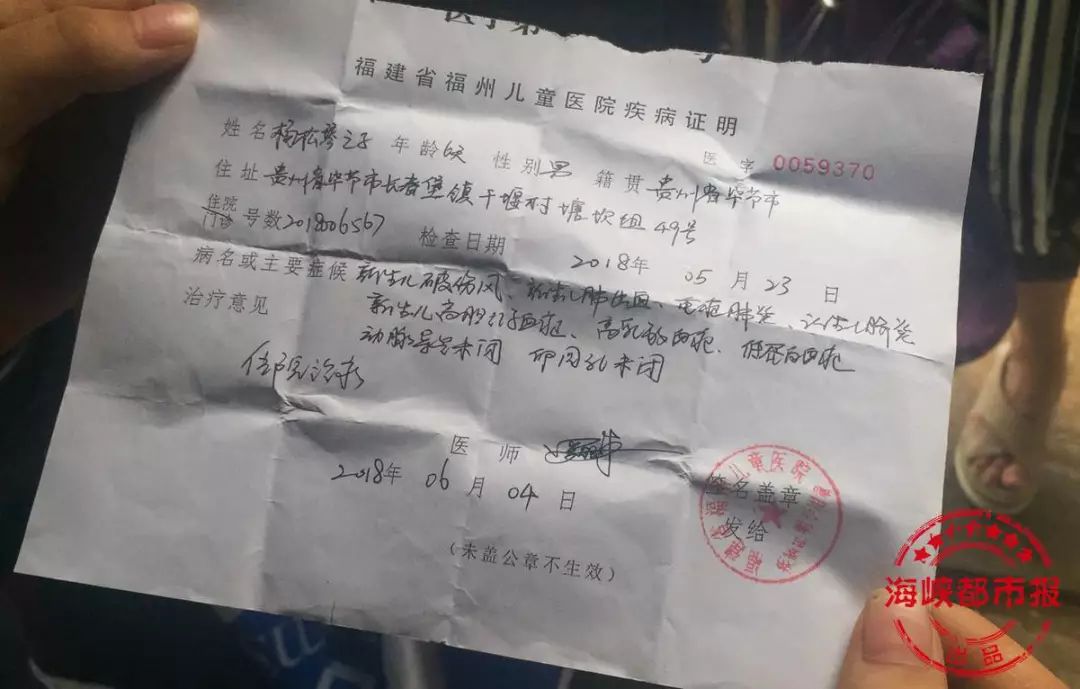 福建省福州儿童医院疾病证明
医字 0059370
姓名 杨松琴之子 年龄 6天 性别 男 籍贯 贵州省毕节市
住址 贵州省毕节市长春堡镇干堰村塘坎组49号
住院
门诊 号数 201806567 检查日期 2018年 05月 23日
病名或主要症候 新生儿破伤风、新生儿肺出血、重症肺炎、新生儿脐炎
新生儿高胆红素血症、高乳酸血症、低蛋白血症
动脉导管未闭 卵圆孔未闭
治疗意见
住院治疗
医师
2018年 06月 04日
签名盖章
发给
(未盖公章不生效)
儿童医院
海峡都市报
出品